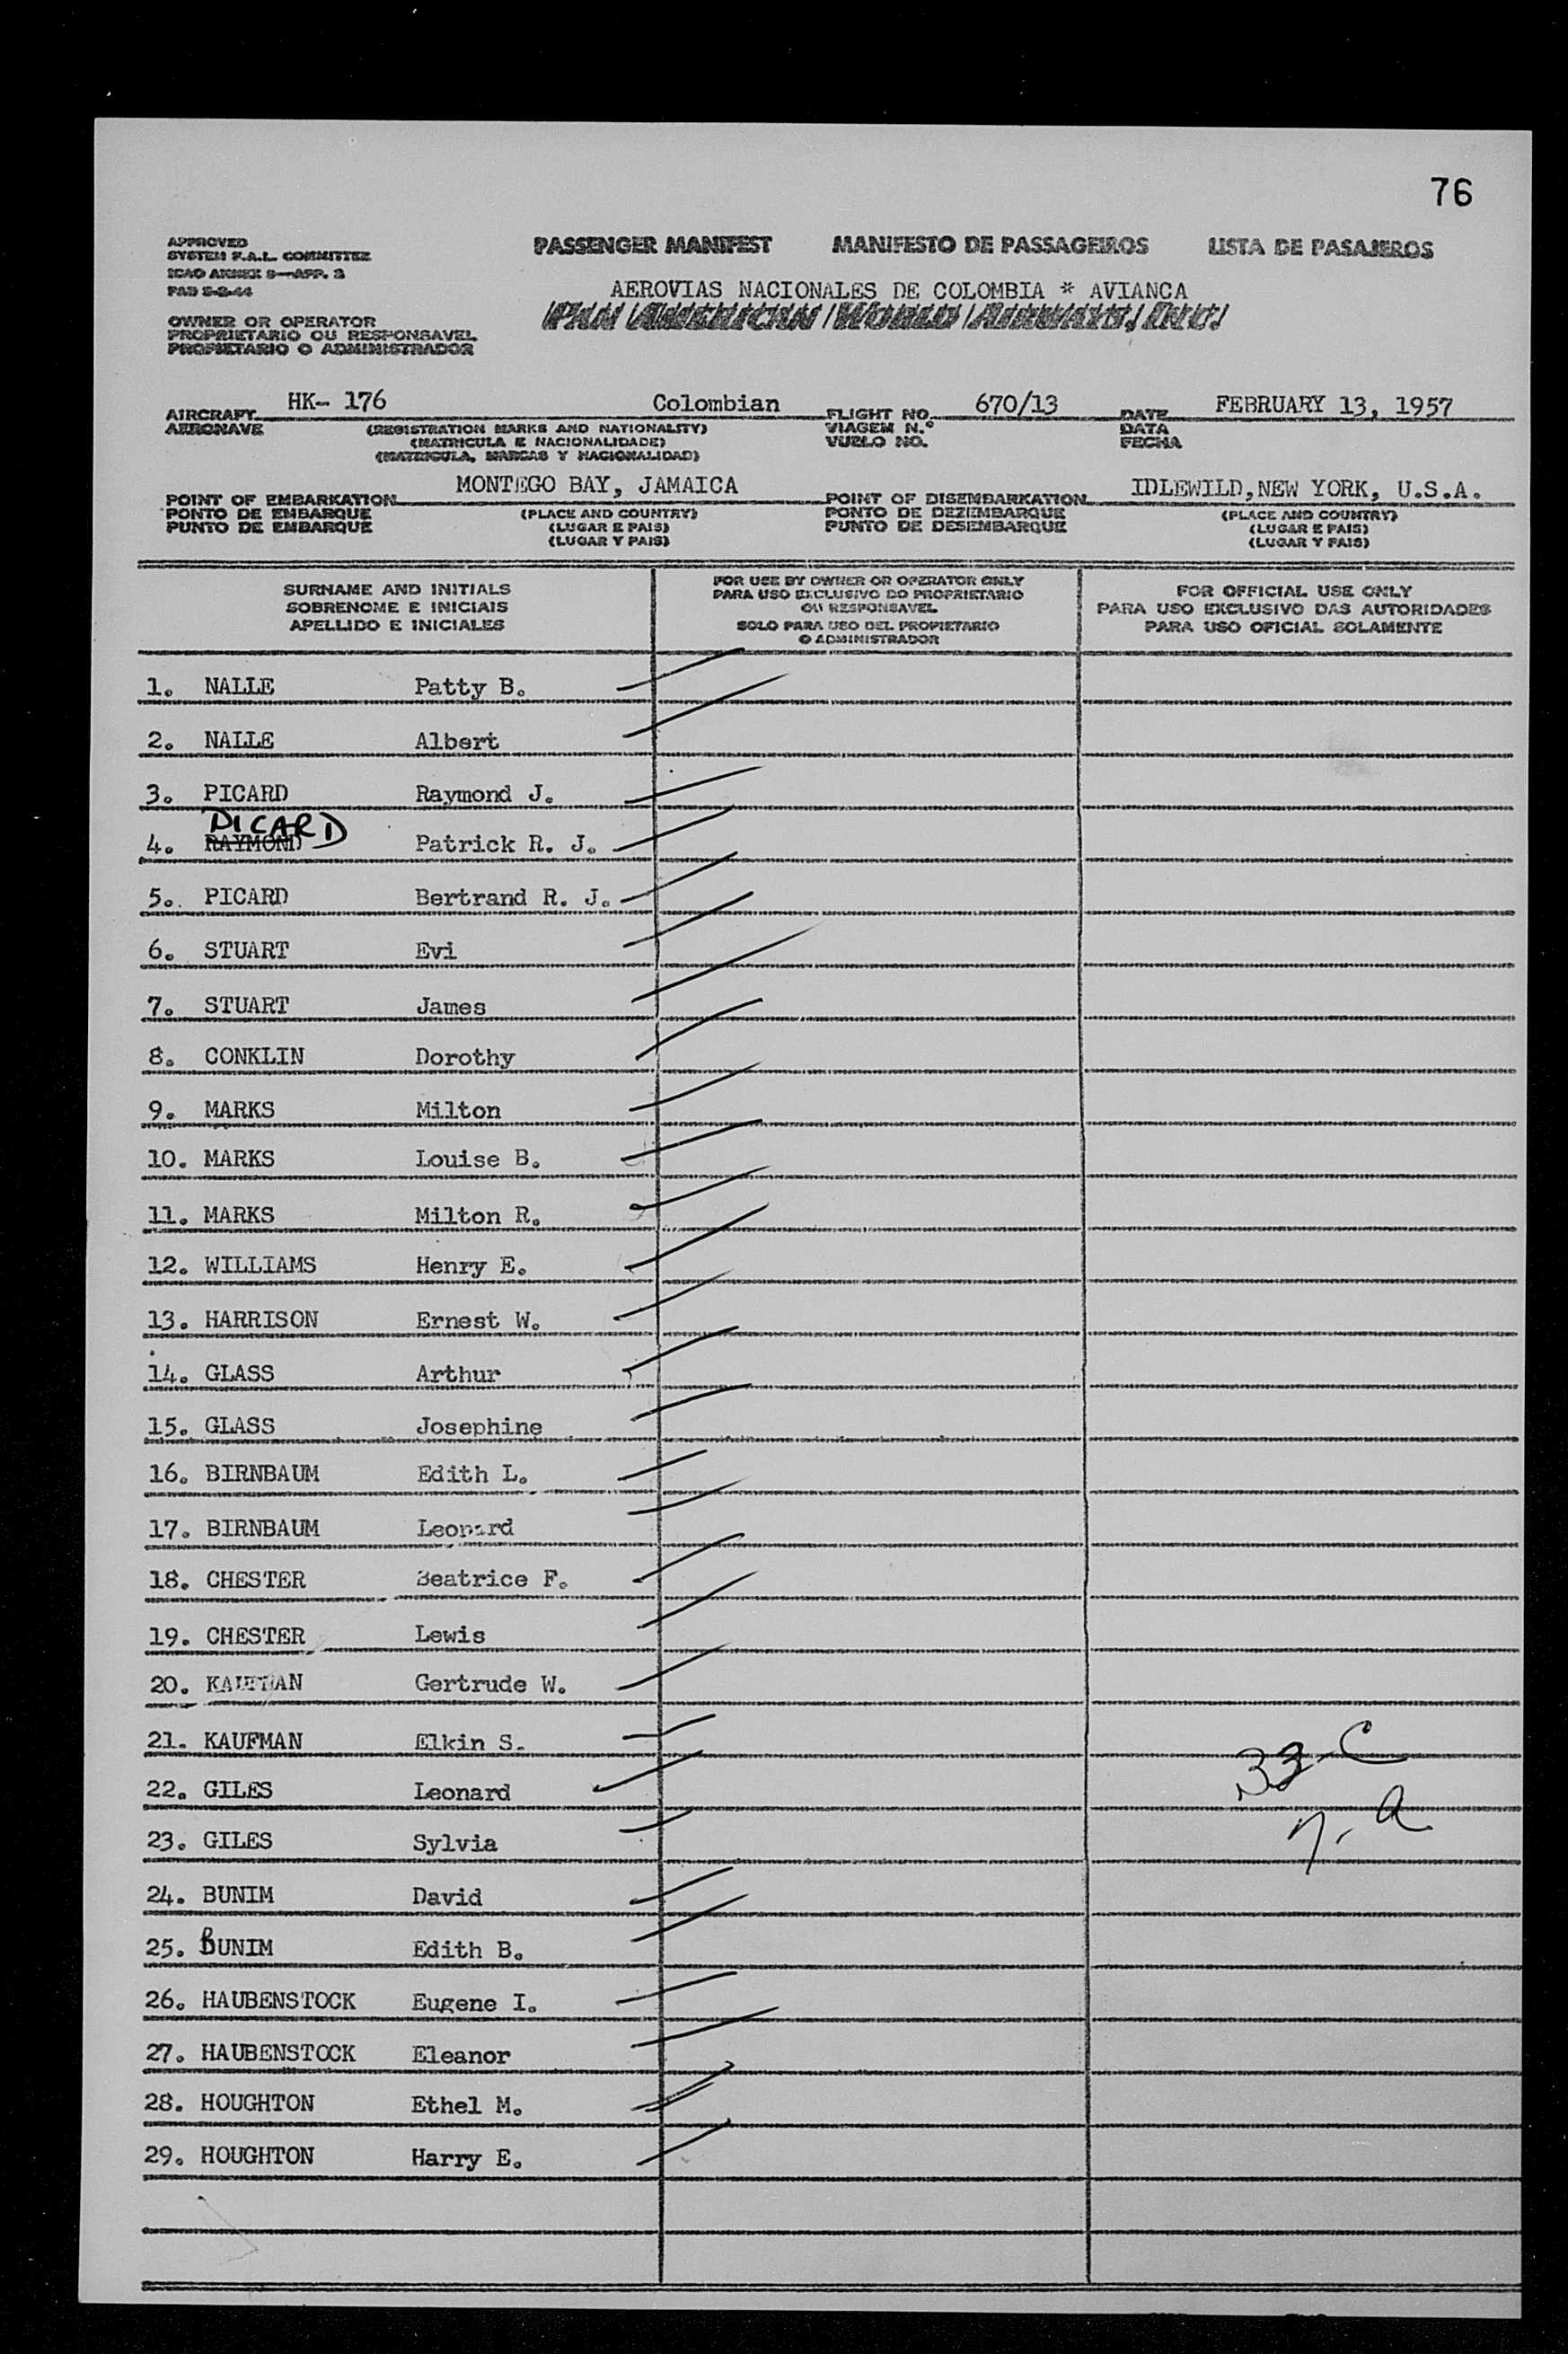 76
APPROVED
SYSTEM F.A.L. COMMITTEE
ICAO ANNEX 9—APP. 3
PAD 2-2-44
PASSENGER MANIFEST MANIFESTO DE PASSAGEIROS LISTA DE PASAJEROS
AEROVIAS NACIONALES DE COLOMBIA * AVIANCA
PAN AMERICAN WORLD AIRWAYS, INC.
OWNER OR OPERATOR
PROPRIETARIO OU RESPONSAVEL
PROPIETARIO O ADMINISTRADOR
AIRCRAFT HK- 176 Colombian FLIGHT NO. 670/13 DATE FEBRUARY 13, 1957
AERONAVE (REGISTRATION MARKS AND NATIONALITY) VIAGEM N.° DATA
(MATRICULA E NACIONALIDADE) VUELO NO. FECHA
(MATRICULA, MARCAS Y NACIONALIDAD)
POINT OF EMBARKATION MONTEGO BAY, JAMAICA POINT OF DISEMBARKATION IDLEWILD, NEW YORK, U.S.A.
PONTO DE EMBARQUE (PLACE AND COUNTRY) PONTO DE DEZEMBARQUE (PLACE AND COUNTRY)
PUNTO DE EMBARQUE (LUGAR E PAIS) PUNTO DE DESEMBARQUE (LUGAR E PAIS)
(LUGAR Y PAIS) (LUGAR Y PAIS)
SURNAME AND INITIALS
SOBRENOME E INICIAIS
APELLIDO E INICIALES
FOR USE BY OWNER OR OPERATOR ONLY
PARA USO EXCLUSIVO DO PROPRIETARIO
OU RESPONSAVEL
SOLO PARA USO DEL PROPIETARIO
O ADMINISTRADOR
FOR OFFICIAL USE ONLY
PARA USO EXCLUSIVO DAS AUTORIDADES
PARA USO OFICIAL SOLAMENTE
1. NALLE Patty B.
2. NALLE Albert
3. PICARD Raymond J.
PICARD
4. RAYMOND Patrick R. J.
5. PICARD Bertrand R. J.
6. STUART Evi
7. STUART James
8. CONKLIN Dorothy
9. MARKS Milton
10. MARKS Louise B.
11. MARKS Milton R.
12. WILLIAMS Henry E.
13. HARRISON Ernest W.
14. GLASS Arthur
15. GLASS Josephine
16. BIRNBAUM Edith L.
17. BIRNBAUM Leonard
18. CHESTER Beatrice F.
19. CHESTER Lewis
20. KAUFMAN Gertrude W.
21. KAUFMAN Elkin S.
22. GILES Leonard
33-C
23. GILES Sylvia
24. BUNIM David
25. BUNIM Edith B.
26. HAUBENSTOCK Eugene I.
27. HAUBENSTOCK Eleanor
28. HOUGHTON Ethel M.
29. HOUGHTON Harry E.